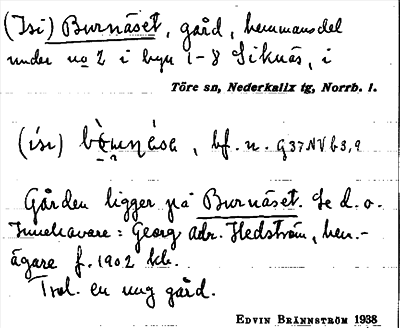 (Isi) Burnäset, gård, hemmansdel
under no 2 i byn 1-8 Siknäs, i
Töre sn, Nederkalix tg, Norrb. l.
(ísi) , bf. n. G37NVb3,9
Gården ligger på Burnäset. Se d. o.
Innehavare: Georg Adr. Hedström, hem.-
ägare f. 1902 hb.
Trol. en ung gård.
EDVIN BRÄNNSTRÖM 1938